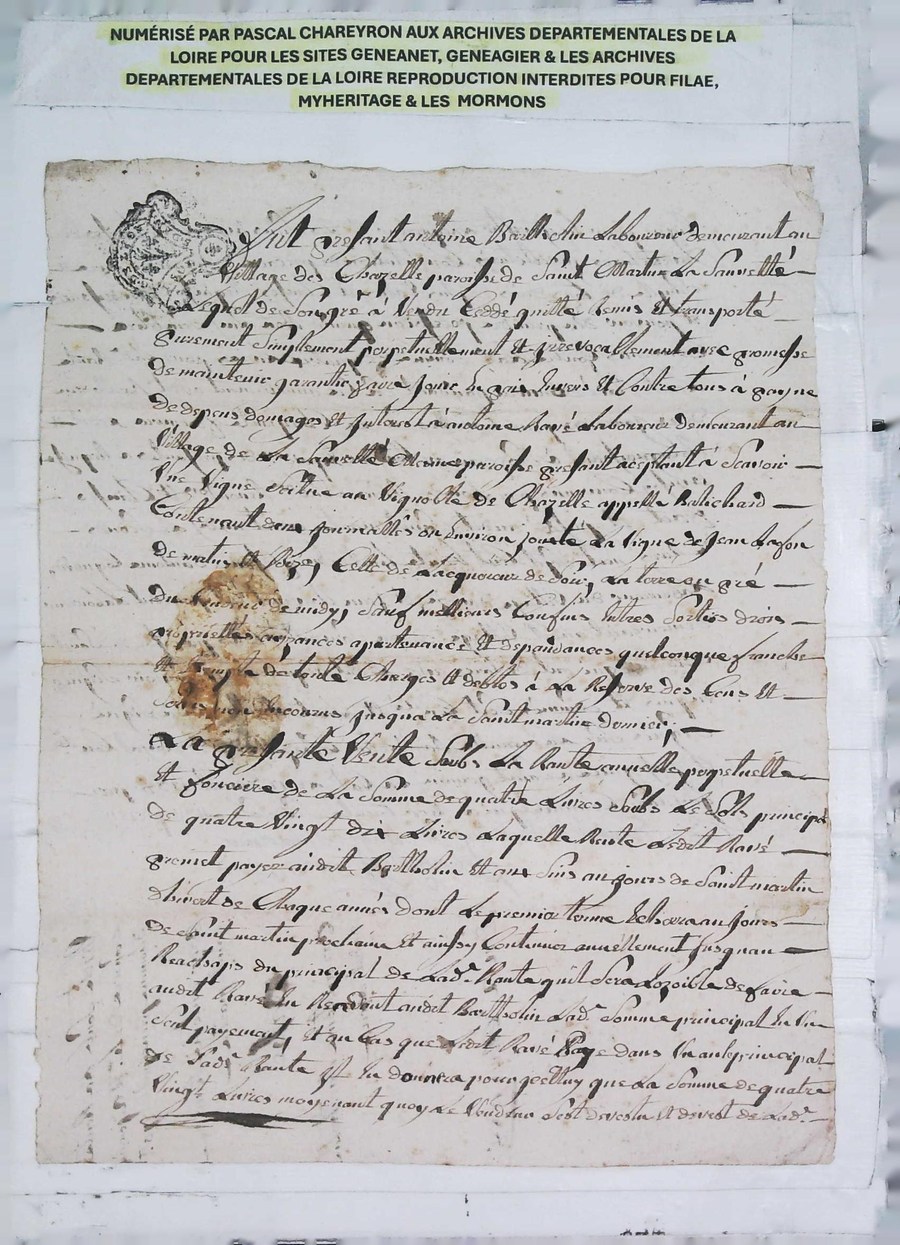 NUMÉRISÉ PAR PASCAL CHAREYRON AUX ARCHIVES DEPARTEMENTALES DE LA
LOIRE POUR LES SITES GENEANET, GENEAGIER & LES ARCHIVES
DEPARTEMENTALES DE LA LOIRE REPRODUCTION INTERDITES POUR FILAE,
MYHERITAGE & LES MORMONS
Fut present antoine Bartholin Laboureur demeurant au
Village de Chazelle paroisse de Saint Martin La Sauvetté
Lequel de Son gré à Vendu Ceddé quitté Remis Et transporté
purement Simplement perpetuellement Et Irrevocablement avec promesse
de maintenir garantir faire Jouir Envers Et Contre tous à payne
de depens domages Et Interest à antoine Ravé Laboureur demeurant au
Village de La Sauvetté meme paroisse present aceptant à Scavoir
Une Vigne Scitue au Vignoble de Chazelle appellé
Contenant deux Journallés ou Environ Jouxte La Vigne de Jean Lafon
de matin Et Bize, Celle de Lacquereur de Soir, La terre
du Vendeur de midy, Sauf meilleurs Confins Entres Sorties droits
proprietés aizances apartenances Et dependances quelconque franche
Et Exempte de toute Charges Et debtes à La Reserve des Cens Et
non Encourus Jusqua La Saint martin dernier;
La presente Vente Soubs La Rante annuelle perpetuelle
Et fonciere de La Somme de quatre Livres Soubs Le Sols principal
de quatre Vingt dix Livres Laquelle Rente Ledit Ravé
promet payer audit Bartholin Et aux Siens au Jours de Saint martin
dhivert de Chaque années dont Le premier terme Echerra au Jours
de Saint martin prochaine Et ainsy Continuer annuellement Jusquau
Reachapt du principal de Lad.e Rante quil Sera Loizible de faire
audit Ravé En Rendant audit Bartholin Lad.e Somme principal En Un
Seul payement, Et au Cas que Ledit Ravé Paye dans Un an Le principal
de Lad.e Rante Il En donnera pour Icelluy que La Somme de quatre
Vingt Livres moyenant quoy Le Vendeur Sest devestu Et devest de Lad.e